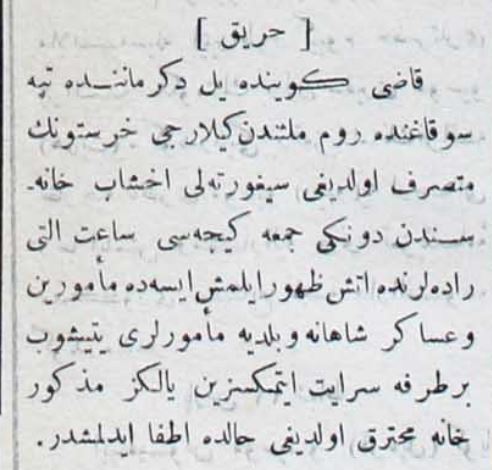 [ حریق ]
قاضی كوینده یل دكر ماننده تپه
سوقاغنده روم ملتندن كیلارجی خرستونك
متصرف اولدیغی سیغورتەلی اخشاب خانه‌
سندن دونكی جمعه كیجەسی ساعت التی
رادەلرنده اتش ظهور ایلمش ایسەده مأمورین
و عساكر شاهانه و بلدیه مأمورلری یتیشوب
بر طرفه سرایت ایتمكسزین یالكز مذكور
خانه محترق اولدیغی حالده اطفا ایدلمشدر.